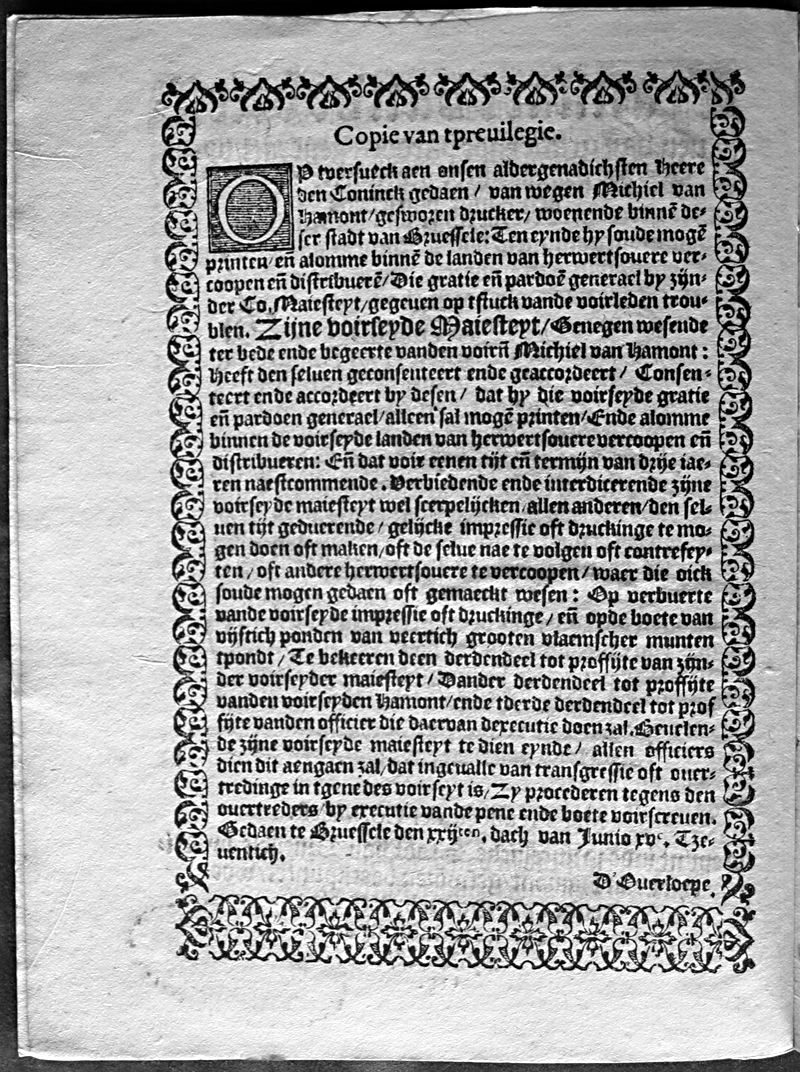 Copie van tpreuilegie.
OP tversueck aen onsen aldergenadichsten Heere
den Coninck gedaen / van wegen Michiel van
Hamont / gesworen drucker / woenende binnē de⸗
ser stadt van Bruessele: Ten eynde hy soude mogē
printen / eñ alomme binnē de landen van herwertsouere ver⸗
coopen eñ distribuerē / Die gratie eñ pardoē generael by zijn⸗
der Co. Maiesteyt / gegeuen op tstuck vande voirleden trou⸗
blen. Zijne voirseyde Maiesteyt / Genegen wesende
ter bede ende begeerte vanden voirñ Michiel van Hamont :
Heeft den seluen geconsenteert ende geaccordeert / Consen⸗
teert ende accordeert by desen / dat hy die voirseyde gratie
eñ pardoen generael / alleen sal mogē printen / Ende alomme
binnen de voirseyde landen van herwertsouere vercoopen eñ
distribueren: Eñ dat voir eenen tijt eñ termijn van drije iae⸗
ren naestcommende. Verbiedende ende interdicerende zijne
voirseyde maiesteyt wel scerpelijcken / allen anderen / den sel⸗
uen tijt geduerende / gelijcke impressie oft druckinge te mo⸗
gen doen oft maken / oft de selue nae te volgen oft contrefey⸗
ten / oft andere herwertsouere te vercoopen / waer die oick
soude mogen gedaen oft gemaeckt wesen : Op verbuerte
vande voirseyde impressie oft druckinge / eñ opde boete van
vijftich ponden van veertich grooten vlaemscher munten
tpondt / Te bekeeren deen derdendeel tot proffijte van zijn⸗
der voirseyder maiesteyt / Dander derdendeel tot proffijte
vanden voirseyden Hamont / ende tderde derdendeel tot prof
fijte vanden officier die daervan dexecutie doen zal. Beuelen⸗
de zijne voirseyde maiesteyt te dien eynde / allen officiers
dien dit aengaen zal / dat ingeualle van transgressie oft ouer⸗
tredinge in tgene des voirseyt is, Zy procederen tegens den
ouertreders / by executie vande pene ende boete voirscreuen.
Gedaen te Bruessele den xxijten. dach van Junio xvc. Tze⸗
uentich.
D'Ouerloepe.